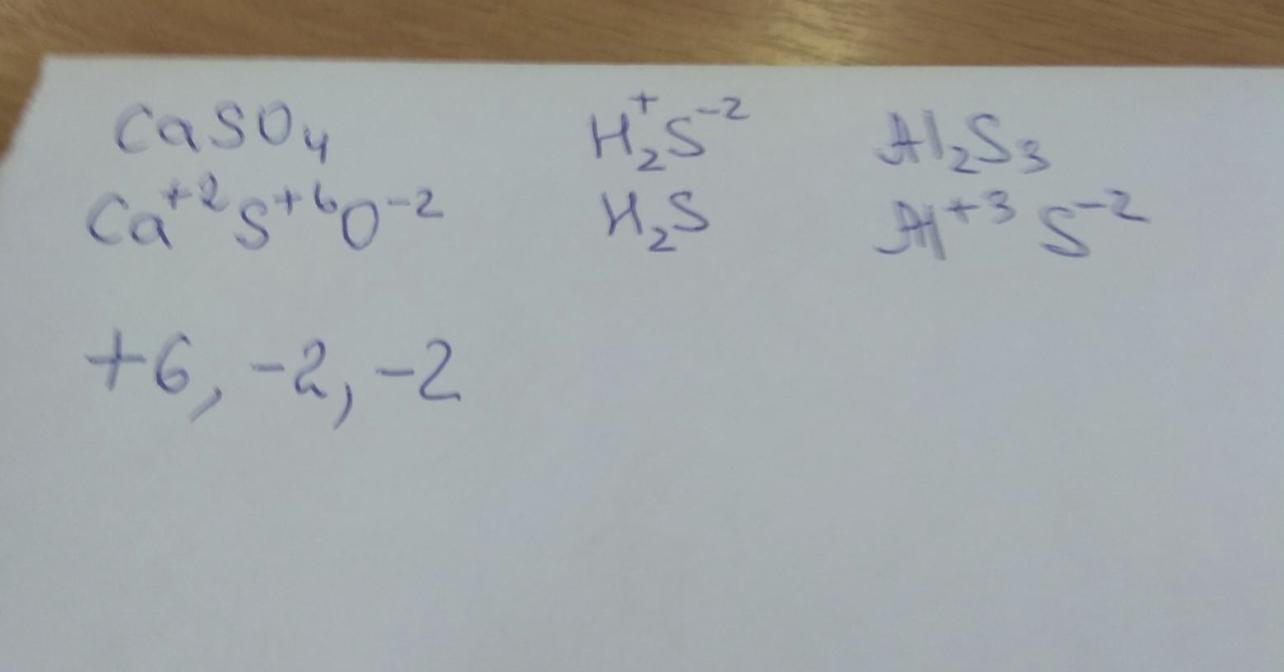 CaSO₄ H₂⁺S⁻² Al₂S₃
Ca⁺²S⁺⁶O⁻² H₂S Al⁺³ S⁻²
+6, -2, -2